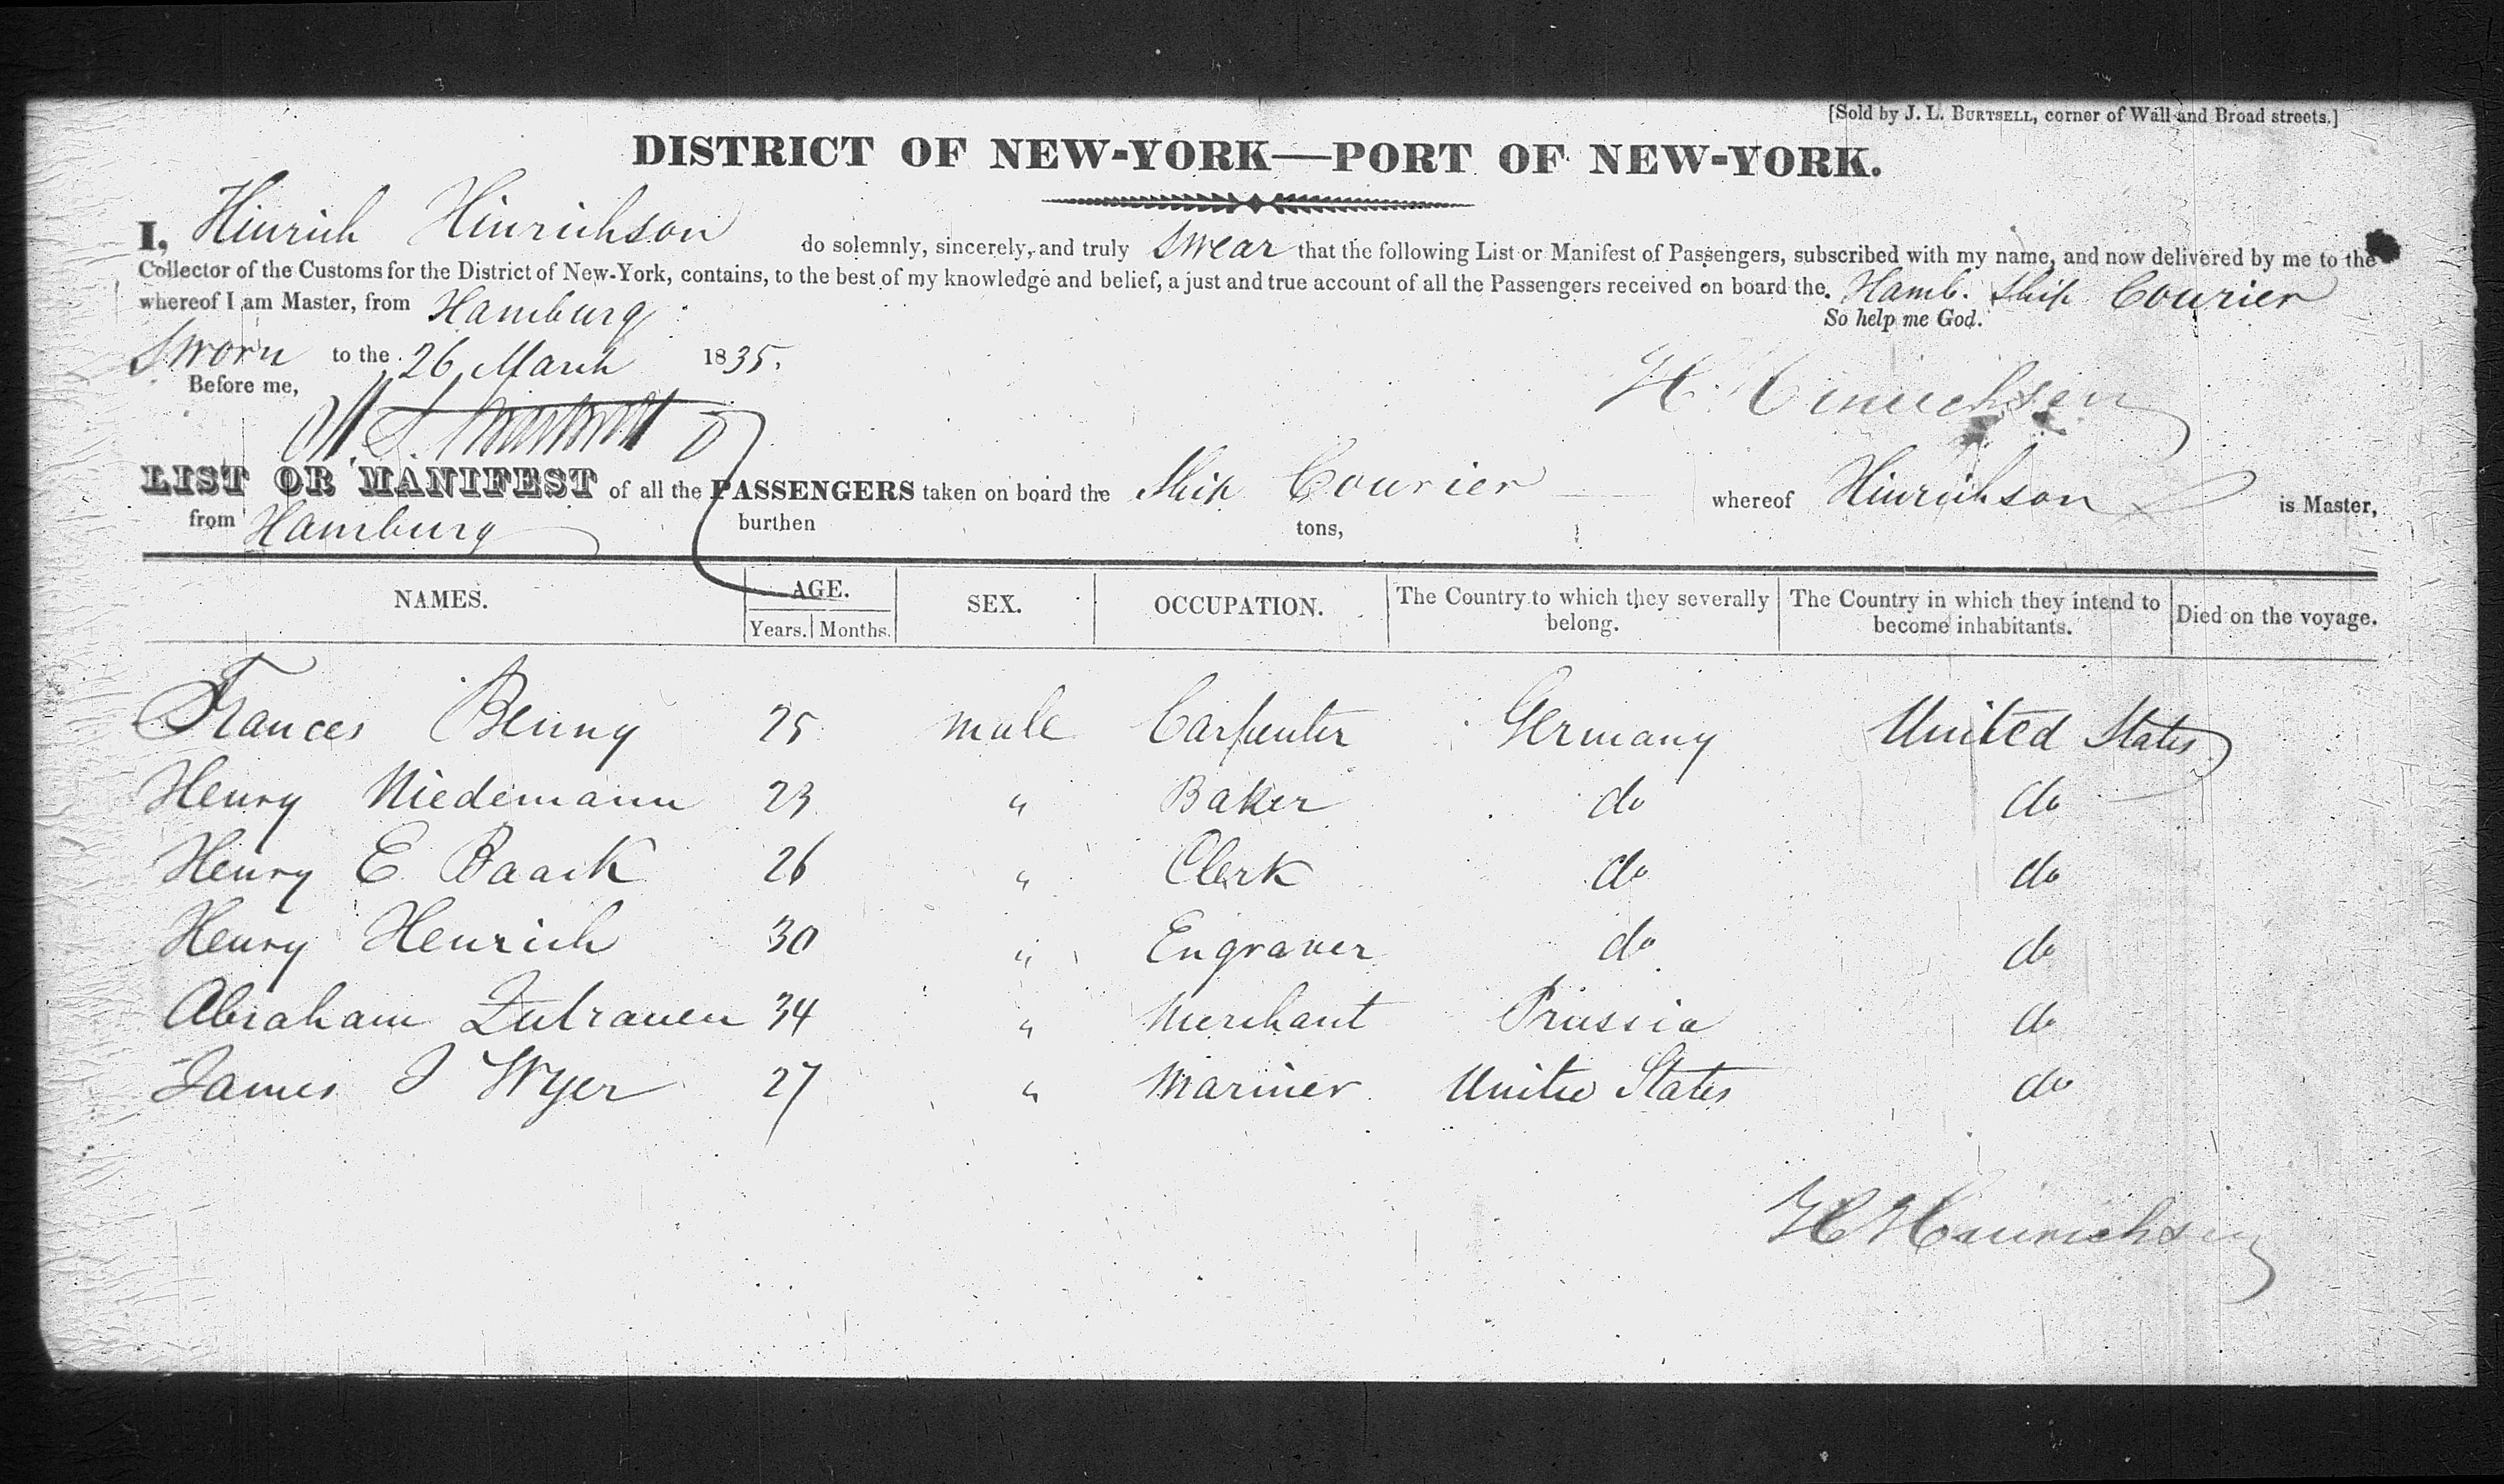 [Sold by J. L. BURTSELL, corner of Wall and Broad streets.]
DISTRICT OF NEW-YORK—PORT OF NEW-YORK.
I, Hinrich Hinrichson do solemnly, sincerely, and truly swear that the following List or Manifest of Passengers, subscribed with my name, and now delivered by me to the
Collector of the Customs for the District of New-York, contains, to the best of my knowledge and belief, a just and true account of all the Passengers received on board the Hamb. Ship Courier
whereof I am Master, from Hamburg
So help me God.
Sworn to the 26 March 1835.
Before me,
H. Hinrichsen
LIST OR MANIFEST of all the PASSENGERS taken on board the Ship Courier whereof Hinrichson is Master,
from Hamburg burthen tons,
NAMES. AGE. SEX. OCCUPATION. The Country to which they severally belong. The Country in which they intend to become inhabitants. Died on the voyage.
Years. Months.
Frances Benny 25 male Carpenter Germany United States
Henry Niedemann 23 " Baker do do
Henry E Baack 26 " Clerk do do
Henry Henrich 30 " Engraver do do
Abraham Zutrauen 34 " Merchant Prussia do
James J Wyer 27 " Mariner United States do
H Hinrichsen